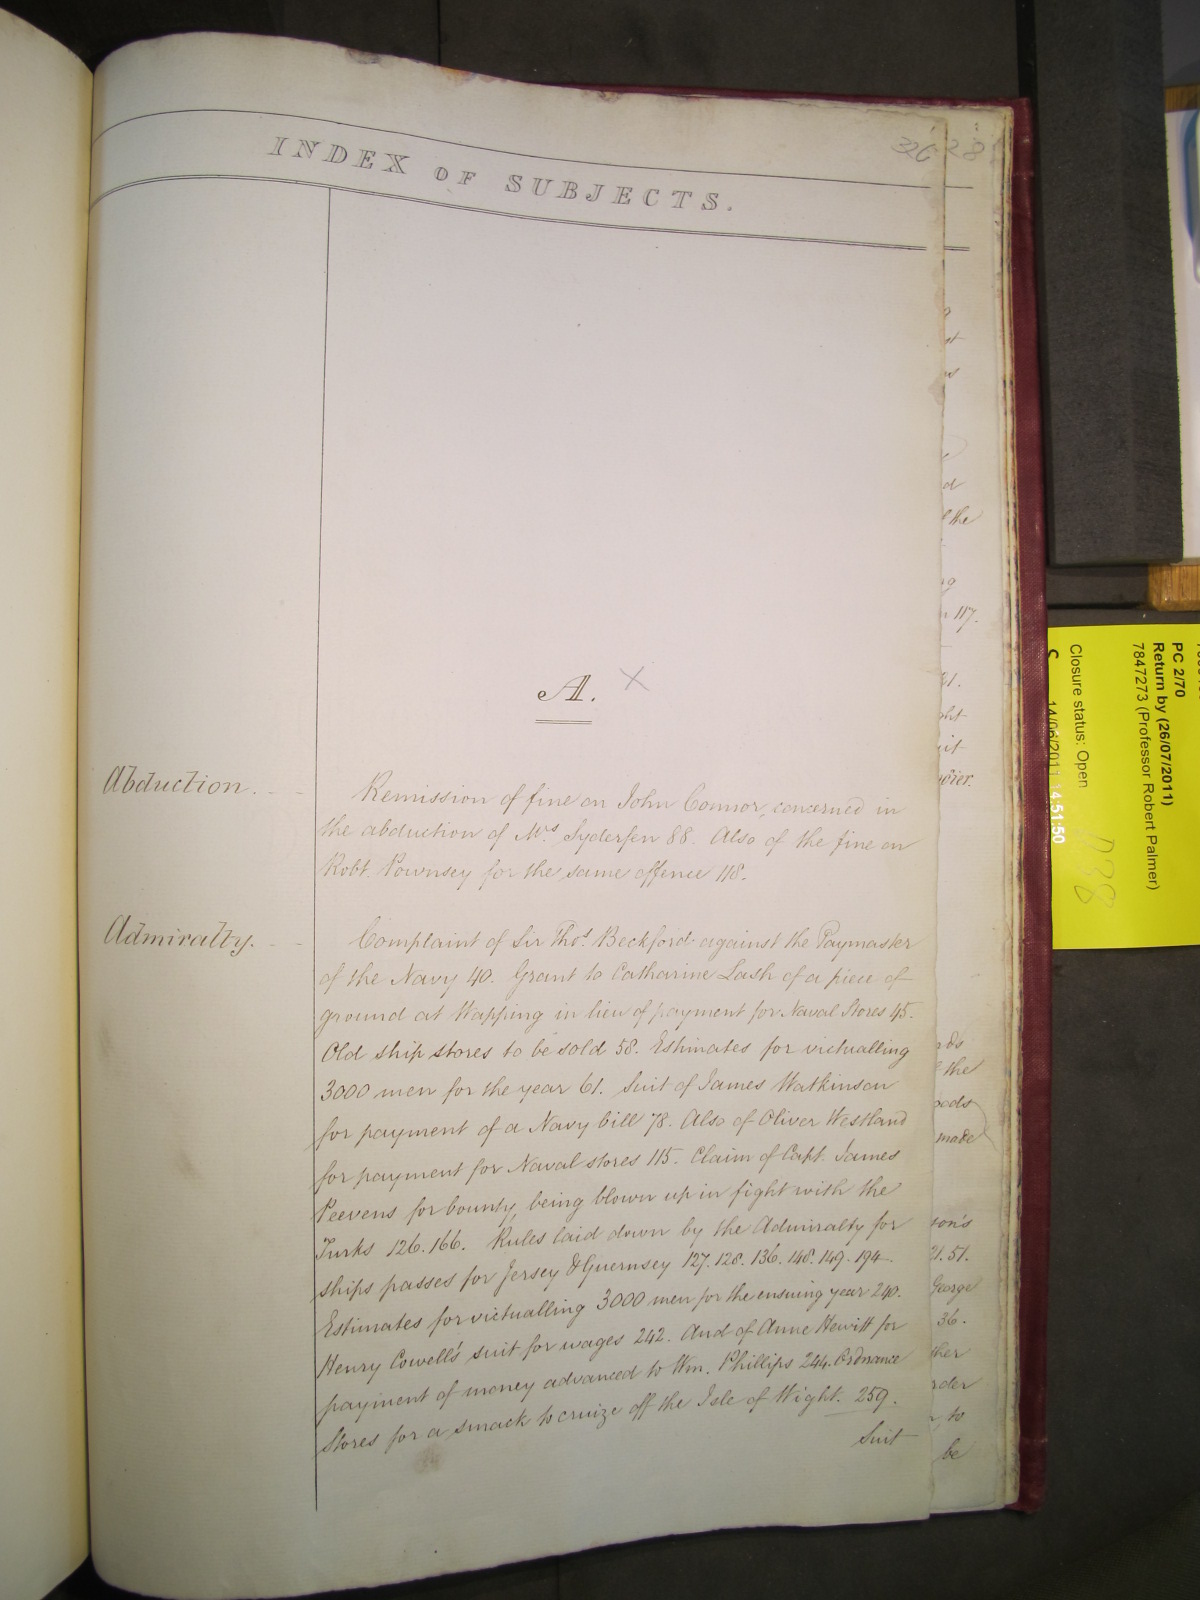 INDEX OF SUBJECTS.
28
A.
Abduction.
Remission of fine on John Connor, concerned in
the abduction of Mrs Syderfen 88. Also of the fine on
Robt. Pownsey for the same offence 118.
Admiralty.
Complaint of Sir Thos. Beckford against the Paymaster
of the Navy 40. Grant to Catharine Lash of a piece of
ground at Wapping in lieu of payment for Naval Stores 45.
Old ship stores to be sold 58. Estimates for victualling
3000 men for the year 61. Suit of James Watkinson
for payment of a Navy bill 78. Also of Oliver Westland
for payment for Naval stores 115. Claim of Capt. James
Peevens for bounty, being blown up in fight with the
Turks 126. 166. Rules laid down by the Admiralty for
ships passes for Jersey & Guernsey 127. 128. 136. 148. 149. 194.
Estimates for victualling 3000 men for the ensuing year 240.
Henry Cowell's suit for wages 242. And of Anne Hewitt for
payment of money advanced to Wm. Phillips 244. Ordnance
stores for a smack to cruize off the Isle of Wight. 259.
Suit
the
117.
made
21. 51.
George
36.
to
be
PC 2/70
Return by (26/07/2011)
7847273 (Professor Robert Palmer)
Closure status: Open
14/06/2011 14:51:50